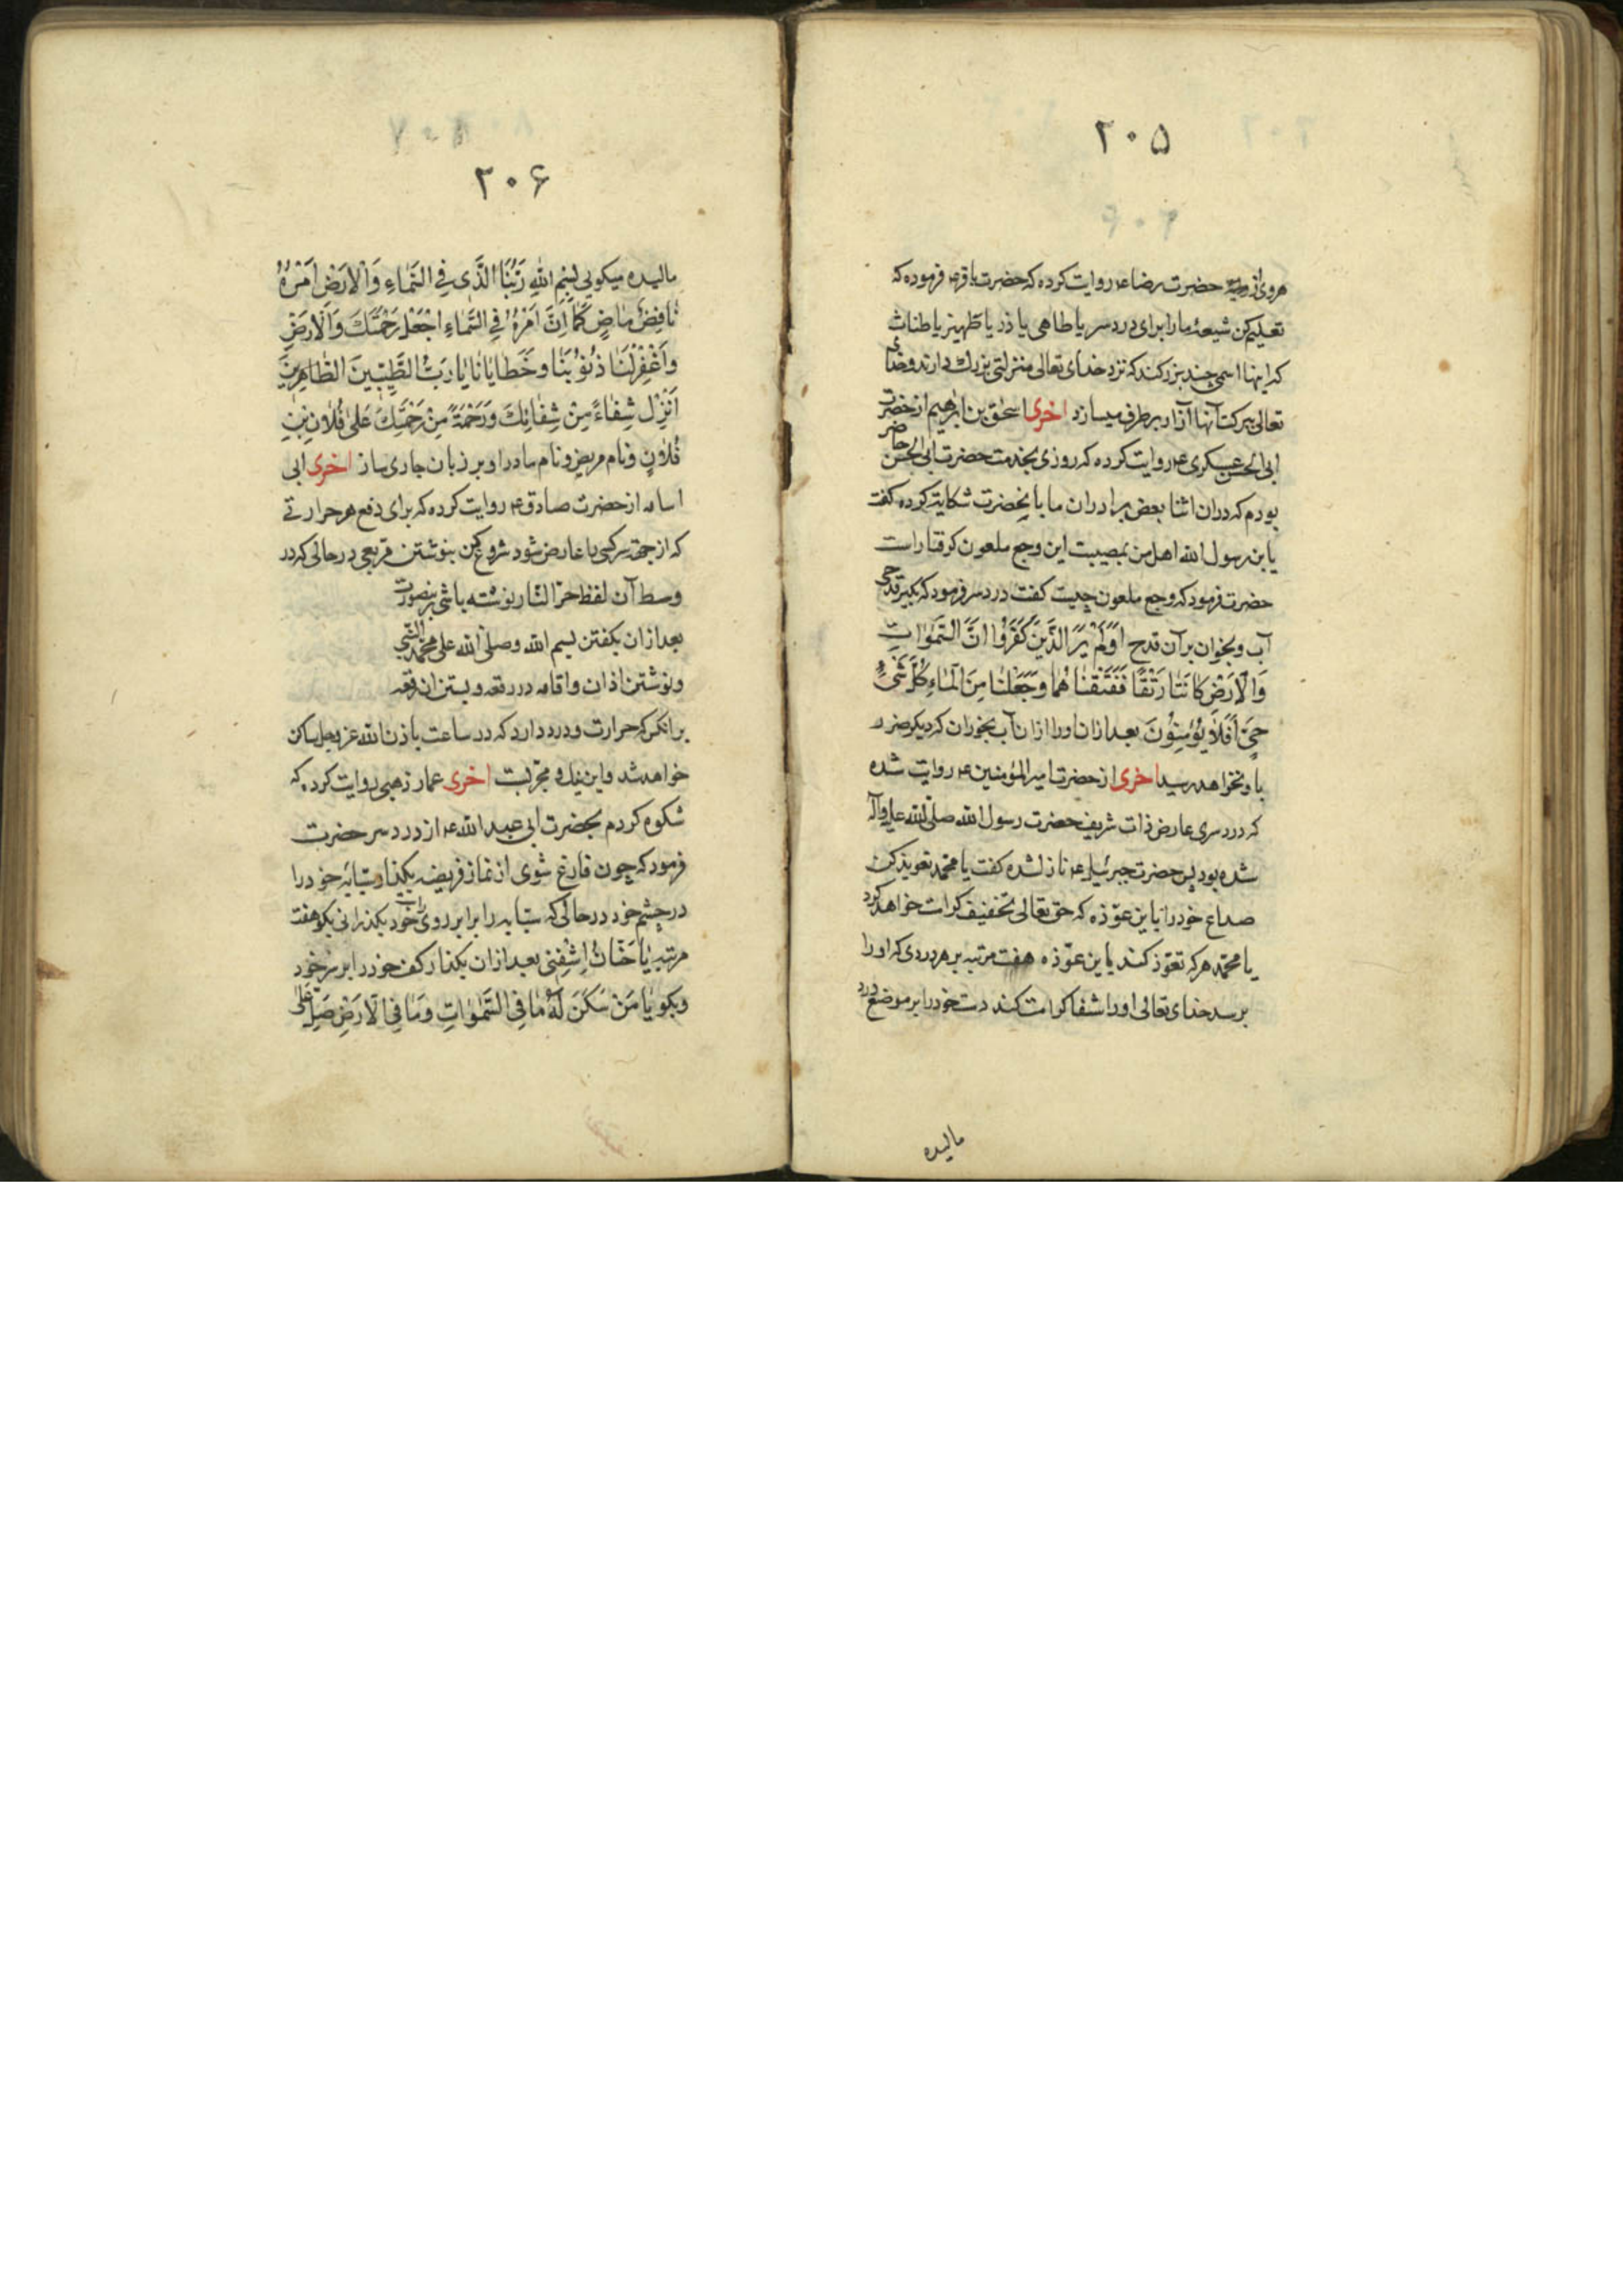 ۲۰۵
هروی از حضرت رضا ع روایت کرده که حضرت باقر ع فرموده که
تعلیم کن شیعهٔ ما را برای درد سر یا طاهی یا ذر یا طهنیر یا طناث
که اینها اسمی چند بزرکند که نزد خدای تعالی منزلتی بزرک دارند وخدای
تعالی ببرکت آنها آزار برطرف میسازد اخری اسحٰق بن ابرهیم از حضرت
ابی الحسن عسکری ع روایت کرده که روزی بخدمت حضرت ابی الحسن حاضر
بودم که دران اثنا بعض برادران ما بانحضرت شکایت کرده کفت
یا بن رسول الله اهل من بمصیبت این وجع ملعون کرفتار است
حضرت فرمود که وجع ملعون چیست کفت درد سر فرمود که بکیر قدحی
آب و بخوان بر آن قدح اَوَلَمْ یَرَ الَّذینَ کَفَرُوا اَنَّ السَّمٰوٰاتِ
وَالْاَرْضَ کٰانَتٰا رَتْقًا فَفَتَقْنٰاهُمٰا وَجَعَلْنٰا مِنَ الْمٰاءِ کُلَّ شَیْءٍ
حَیٍّ اَفَلٰا یُؤْمِنُونَ بعد ازان او را ازان آب بخوران که دیکر ضرر
باو نخواهد رسید اخری از حضرت امیر المؤمنین ع روایت شده
که درد سری عارض ذات شریف حضرت رسول الله صلی الله علیه وآله
شده بود پس حضرت جبرئیل ع نازل شده کفت یا محمد تعویذ کن
صداع خود را باین عوّذه که حق تعالی تخفیف کرامت خواهد کرد
یا محمد هر که تعوّذ کند باین عوّذه هفت مرتبه بر هر دردی که او را
برسد خدای تعالی او را شفا کرامت کند دست خود را بر موضع درد
مالیده
۲۰۶
مالیده میکویی بِسْمِ اللهِ رَبُّنَا الَّذی فِی السَّمٰاءِ وَالْاَرْضِ اَمْرُهُ
نٰافِذٌ مٰاضٍ کَمٰا اَنَّ اَمْرَهُ فِی السَّمٰاءِ اجْعَلْ رَحْمَتَکَ وَالْاَرْضِ
وَاغْفِرْ لَنٰا ذُنُوبَنٰا وَخَطٰایٰانٰا یٰا رَبَّ الطَّیِّبینَ الطّٰاهِرینَ
اَنْزِلْ شِفٰاءً مِنْ شِفٰائِکَ وَرَحْمَةً مِنْ رَحْمَتِکَ عَلیٰ فُلٰانِ بْنِ
فُلٰانٍ و نام مریض و نام مادر او بر زبان جاری ساز اخری ابی
اسامه از حضرت صادق ع روایت کرده که برای دفع هر حرارتی
که از جهة سر کسی را عارض شود شروع کن بنوشتن مربعی در حالی که در
وسط آن لفظ حرّ النار نوشته باشی بنصورت
بعد ازان بکفتن بسم الله وصلّی الله علی محمد النبی
و نوشتن اذان و اقامه در رقعه و بستن ان رقعه
بر انکس که حرارت و درد دارد که در ساعت باذن الله عز وجل ساکن
خواهد شد و این نیک و مجرّبست اخری عمار ذهبی روایت کرده که
شکوه کردم بحضرت ابی عبد الله ع از درد سر حضرت
فرمود که چون فارغ شوی از نماز فریضه بکذار سبّابهٔ خود را
در چشم خود در حالی که سبّابه را برابر روی خود بکذرانی بکو هفت
مرتبه یٰا حَنّٰانُ اِشْفِنی بعد ازان بکذار کف خود را بر سر خود
و بکو یٰا مَنْ سَکَنَ لَهُ مٰا فِی السَّمٰوٰاتِ وَمٰا فِی الْاَرْضِ صَلِّ عَلیٰ